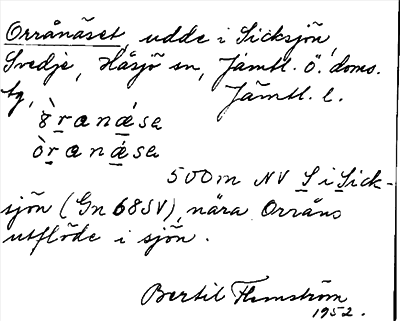 Orrånäset, udde i Sicksjön
Svedje, Håsjö sn, Jämtl. ö. doms.
tg, Jämtl. l.
òranǽsa
500 m NV S i Sick-
sjön (Gn 68 SV), nära Orråns
utflöde i sjön.
Bertil Flemström
1952.